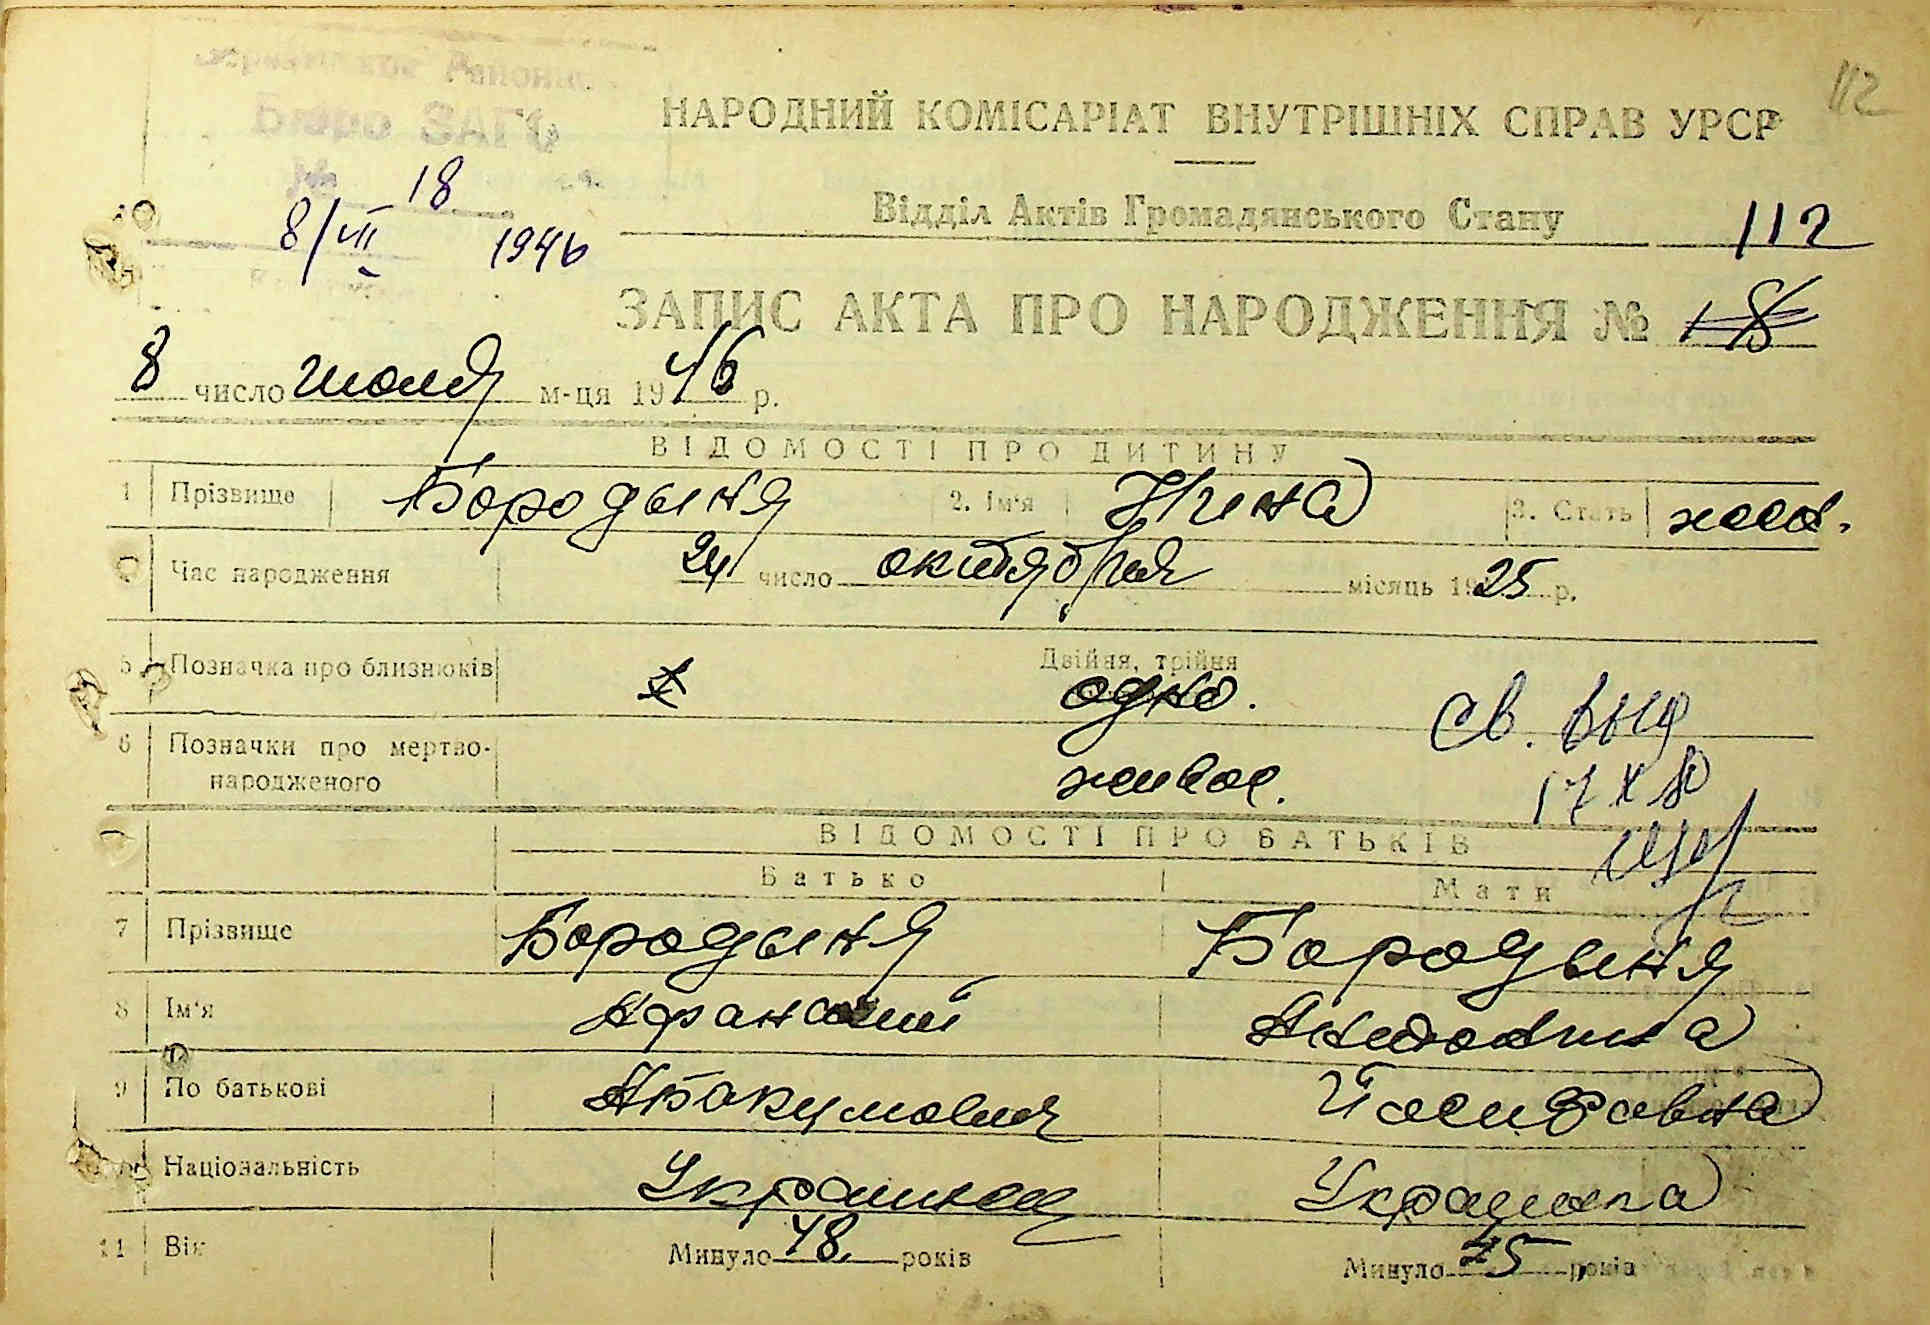 112
Бюро ЗАГС
№ 18
НАРОДНИЙ КОМІСАРІАТ ВНУТРІШНІХ СПРАВ УРСР
8/VII 1946
Відділ Актів Громадянського Стану 112
ЗАПИС АКТА ПРО НАРОДЖЕННЯ № 18
8 число июля м-ця 1946 р.
ВІДОМОСТІ ПРО ДИТИНУ
1 Прізвище Бородыня 2. Ім'я Нина 3. Стать жен.
Час народження 24 число октября місяць 1925 р.
5 Позначка про близнюків Двійня, трійня
одно.
6 Позначки про мертво-
народженого живое.
св. выд
17 X
ВІДОМОСТІ ПРО БАТЬКІВ
Батько Мати
7 Прізвище Бородыня Бородыня
8 Ім'я Афанасий Антонина
9 По батькові Абакумович Йосифовна
Національність Украинец Украинка
11 Вік Минуло 48 років Минуло 45 років